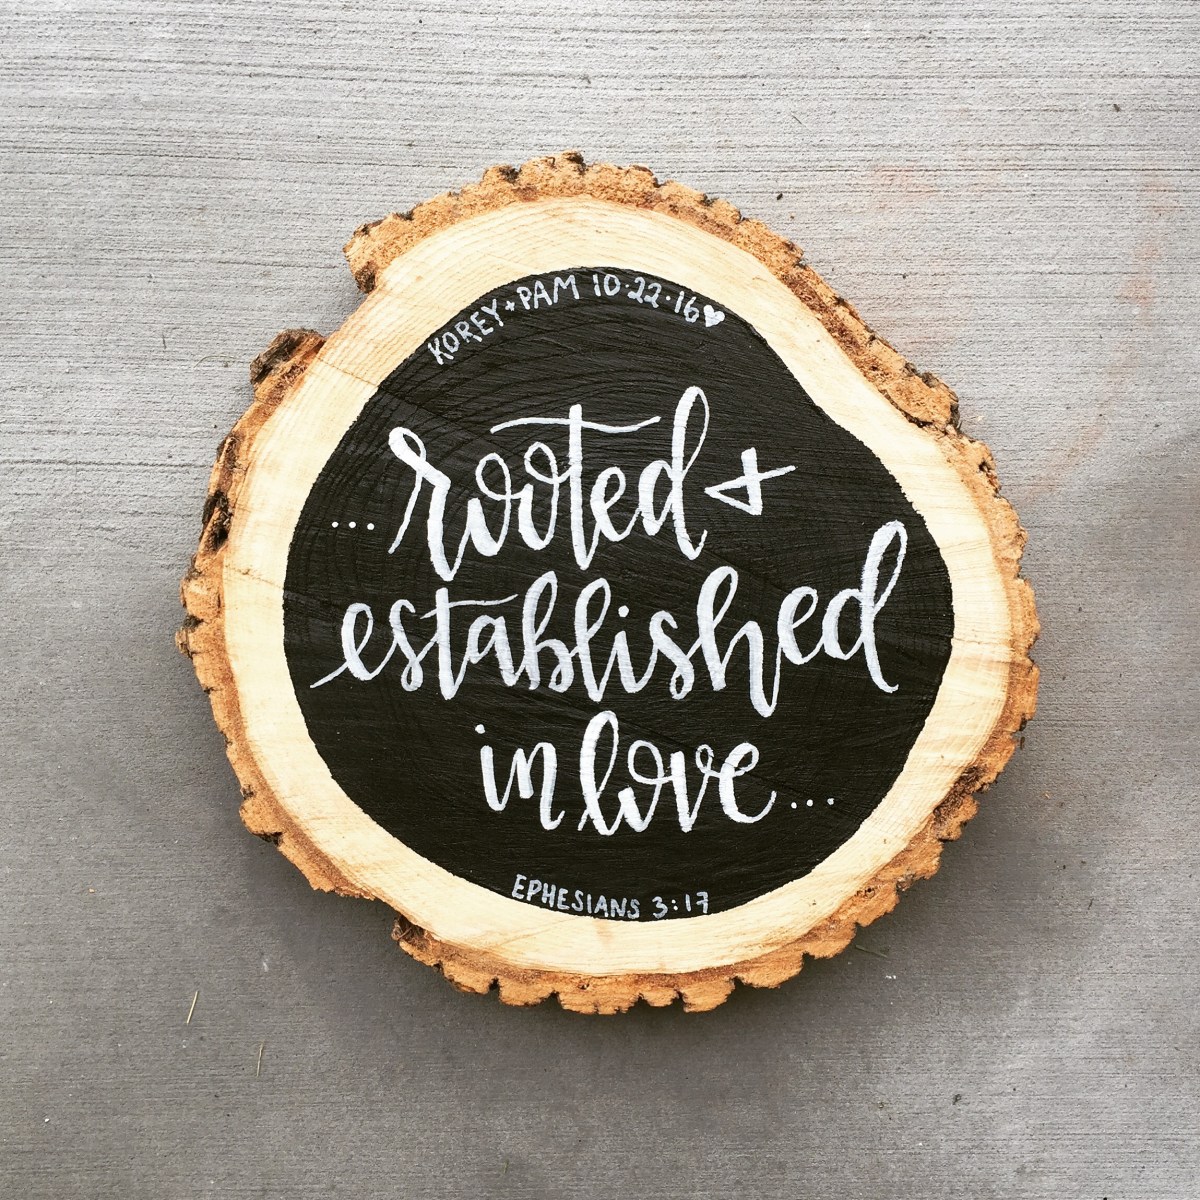 KOREY + PAM 10·22·16♥
...rooted +
established
in love...
EPHESIANS 3:17